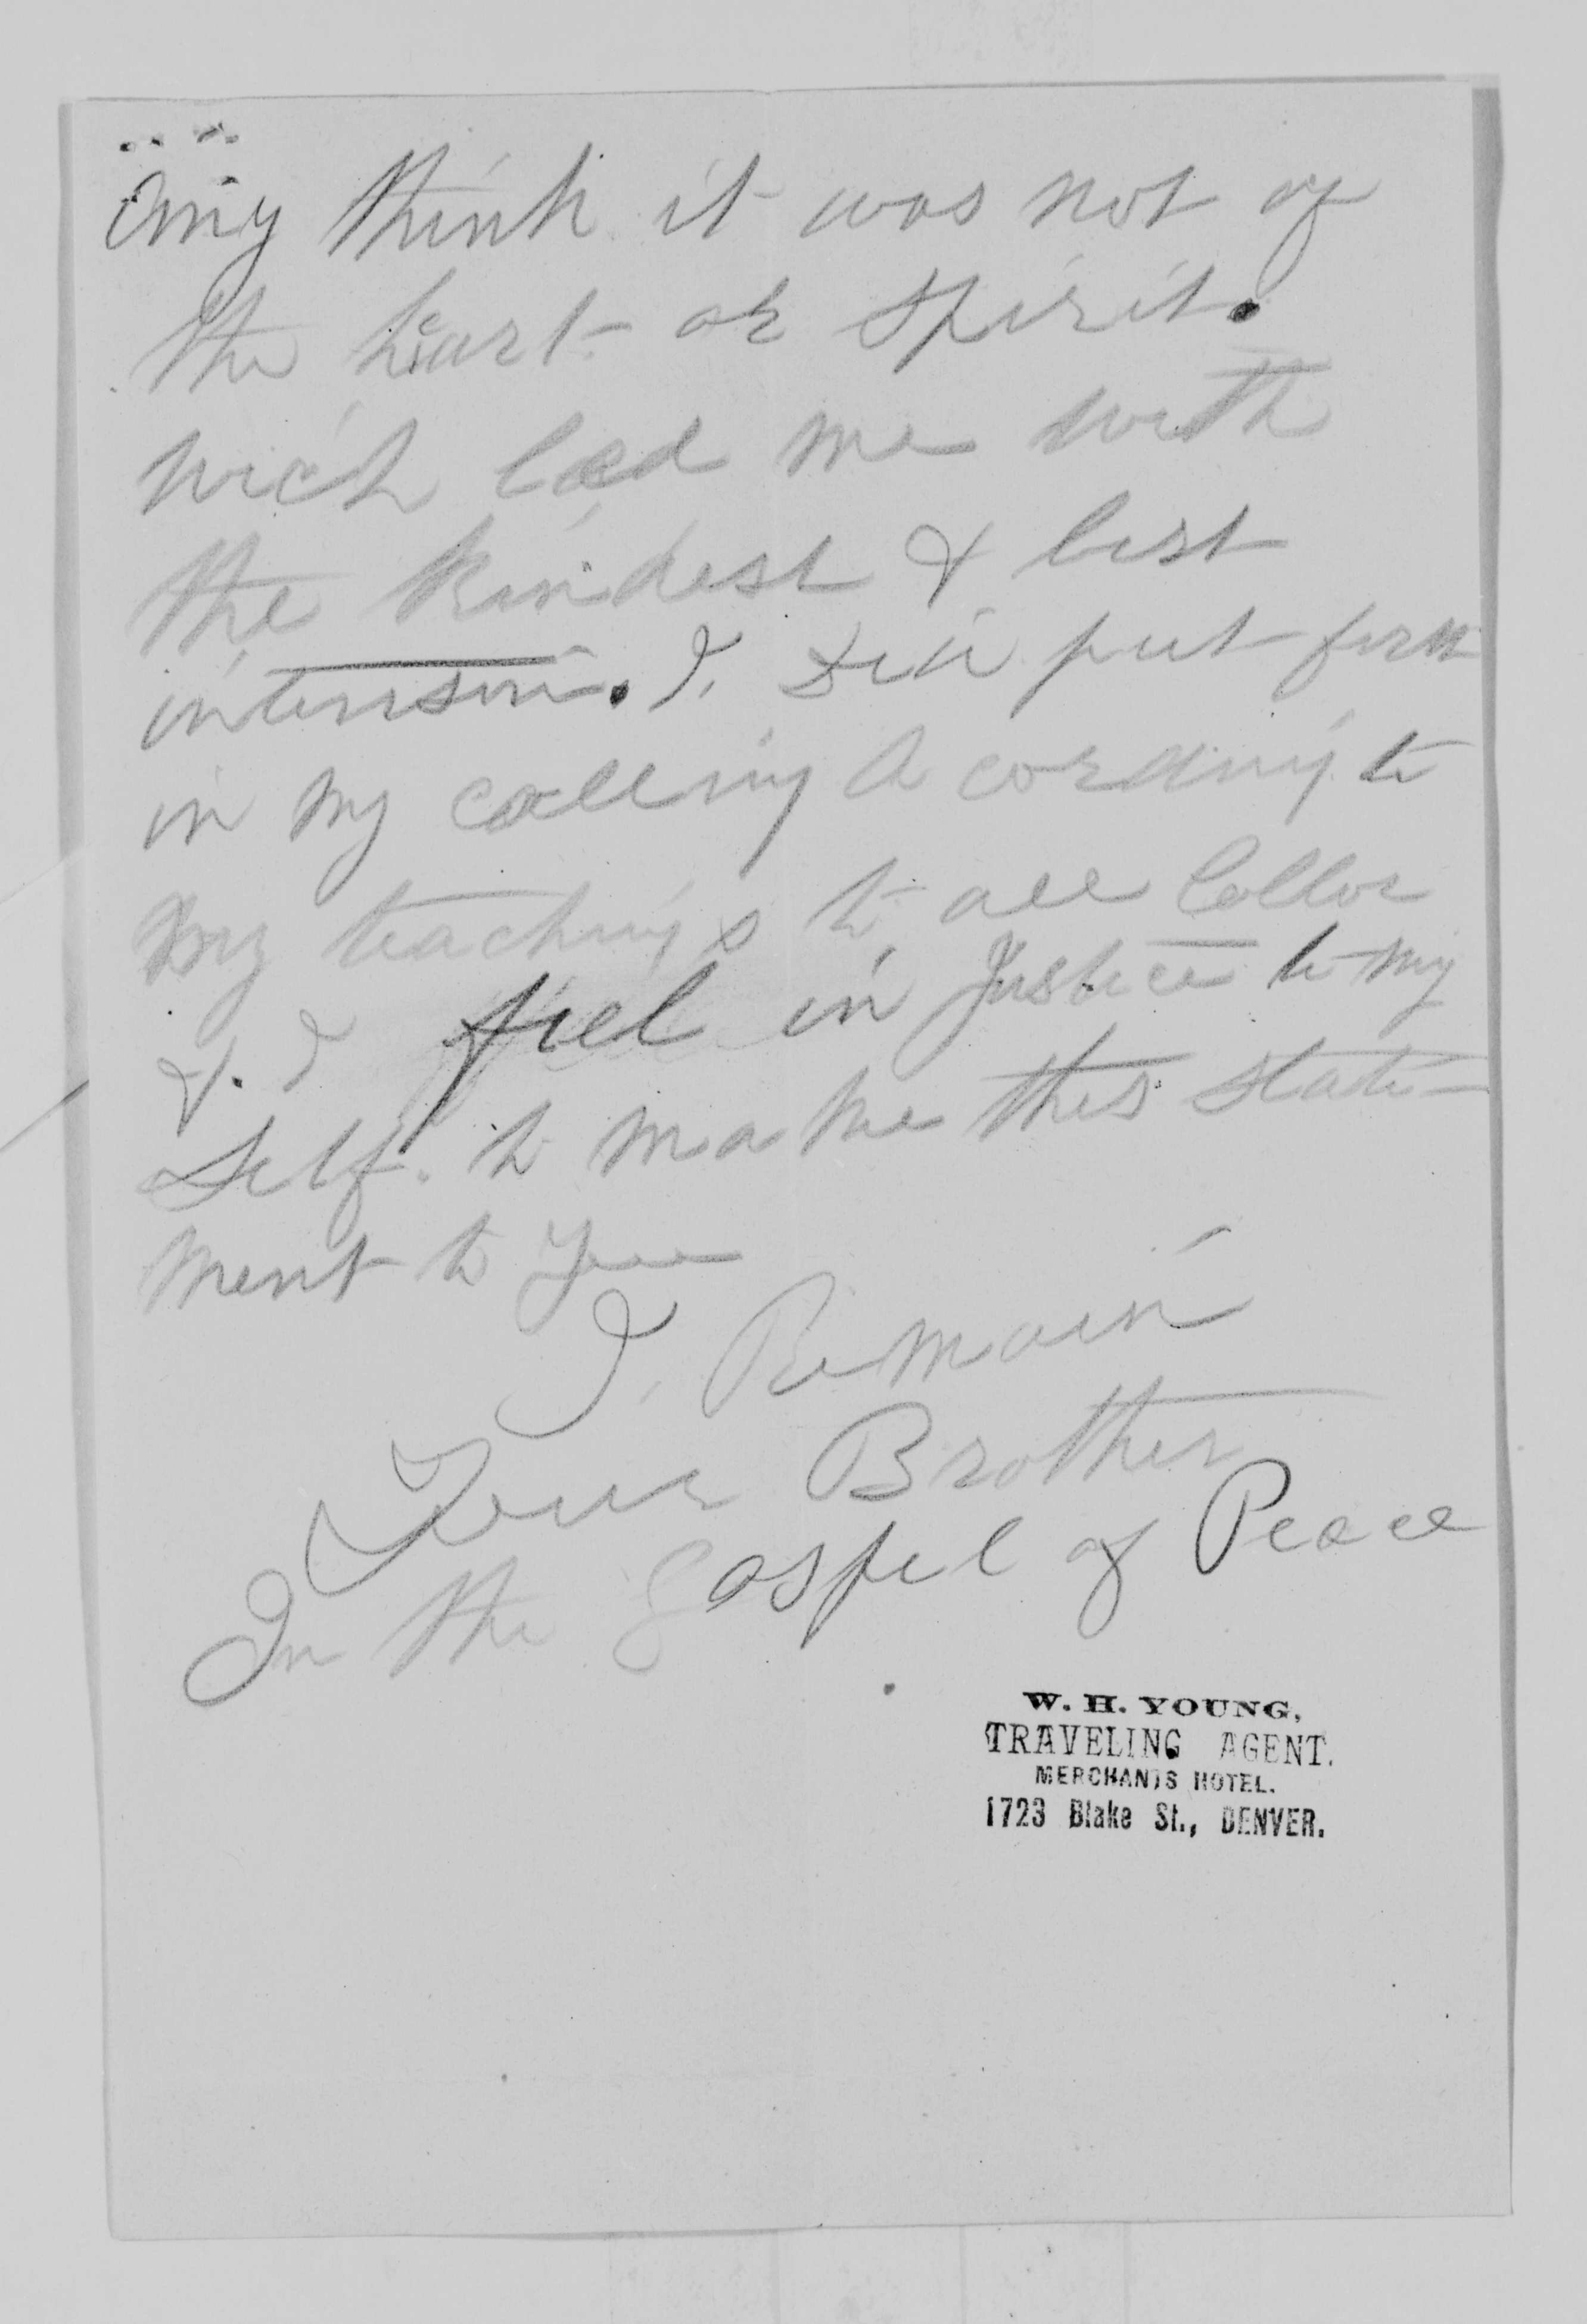 Any think it was not of
the heart or spirit.
wich led me with
the kindest & best
intension. I, did put forth
in my calling A cording to
my teachings to all Collor
&. I feel in Justice to my
Self. to make this state-
ment to you
I, Remain
Your Brother
In the Gospel of Peace
W. H. YOUNG,
TRAVELING AGENT.
MERCHANTS HOTEL.
1723 Blake St., DENVER.